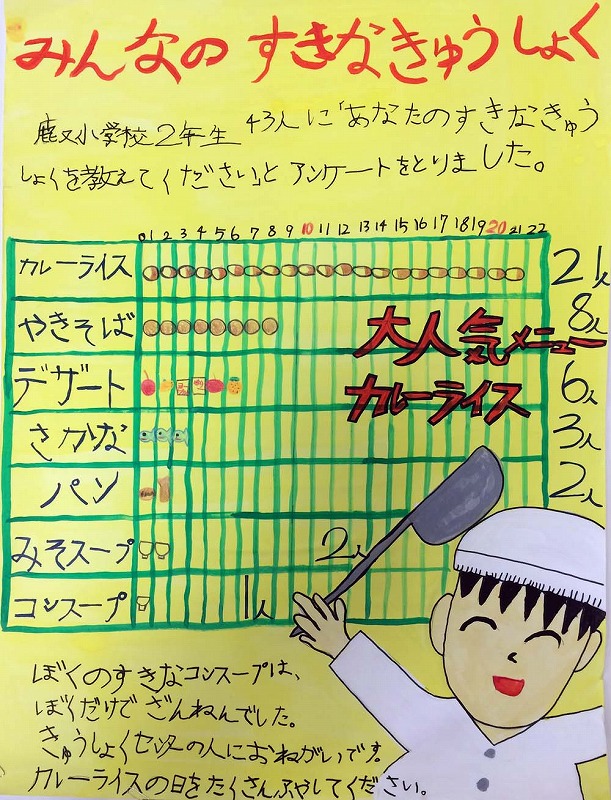 みんなの すきなきゅうしょく
鹿又小学校2年生 43人に「あなたのすきなきゅう
しょくを教えてください」と アンケートをとりました。
0 1 2 3 4 5 6 7 8 9 10 11 12 13 14 15 16 17 18 19 20 21 22
カレーライス 21人
やきそば 8人
大人気メニュー
デザート 6人
カレーライス
さかな 3人
パン 2人
みそスープ 2人
コンスープ 1人
ぼくのすきなコンスープは、
ぼくだけで ざんねんでした。
きゅうしょくセンターの人におねがいです。
カレーライスの日をたくさんふやしてください。